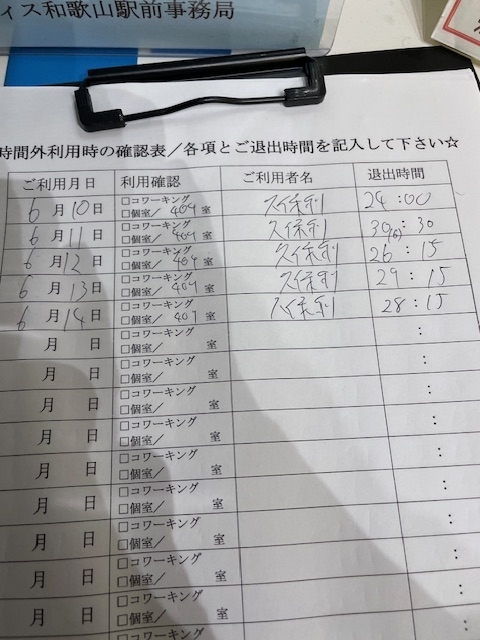 ィス和歌山駅前事務局
時間外利用時の確認表／各項とご退出時間を記入して下さい☆
ご利用月日 利用確認 ご利用者名 退出時間
6月10日 □コワーキング □個室／404室 久保利 24:00
6月11日 □コワーキング □個室／404室 久保利 30(6):30
6月12日 □コワーキング □個室／404室 久保利 26:15
6月13日 □コワーキング □個室／404室 久保利 29:15
6月14日 □コワーキング □個室／407室 久保利 28:15
月 日 □コワーキング □個室／ 室 :
月 日 □コワーキング □個室／ 室 :
月 日 □コワーキング □個室／ 室 :
月 日 □コワーキング □個室／ 室 :
月 日 □コワーキング □個室／ 室 :
月 日 □コワーキング □個室／ 室 :
月 日 □コワーキング □個室／ 室 :
月 日 □コワーキング □個室／ 室 :
月 日 □コワーキング □個室／ 室 :
□コワーキング